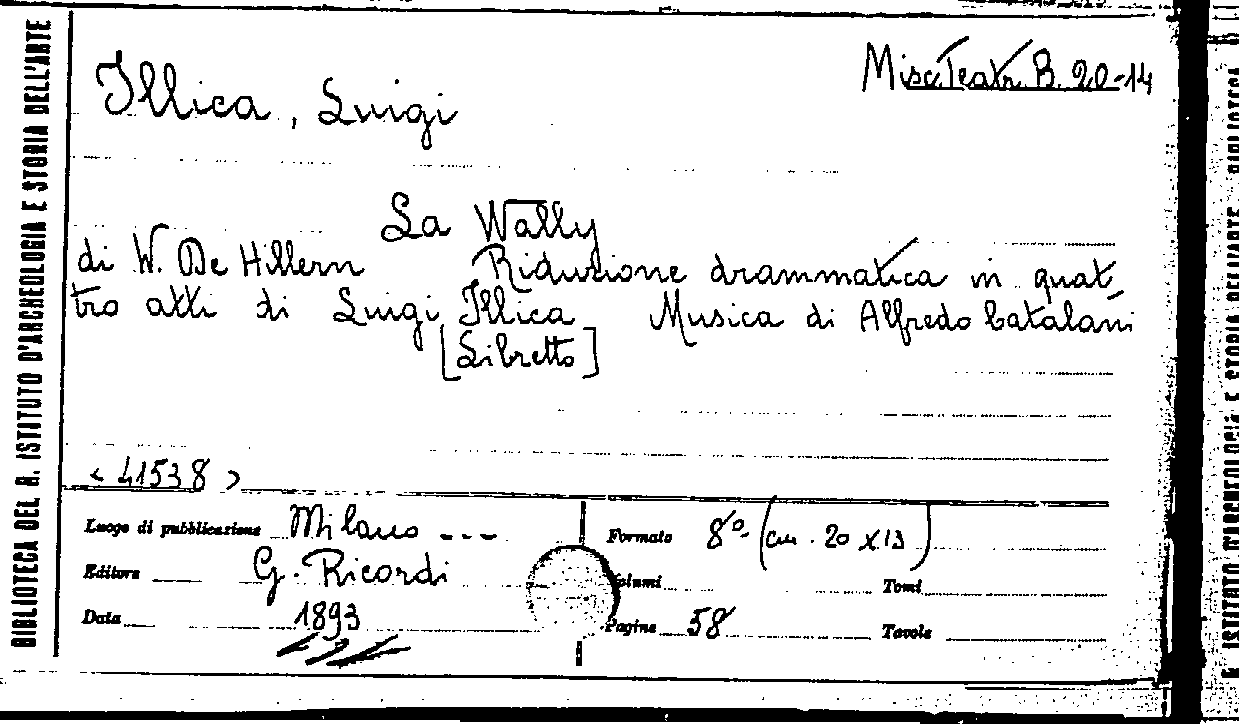 BIBLIOTECA DEL R. ISTITUTO D'ARCHEOLOGIA E STORIA DELL'ARTE
Misc. Teatr. B. 20-14
Illica, Luigi
La Wally
di W. De Hillern Riduzione drammatica in quat
tro atti di Luigi Illica Musica di Alfredo Catalani
[Libretto]
< 41538 >
Luogo di pubblicazione Milano ---
Formato 8º (cm. 20 x 13)
Editore G. Ricordi
Volumi Tomi
Data 1893
Pagine 58 Tavole